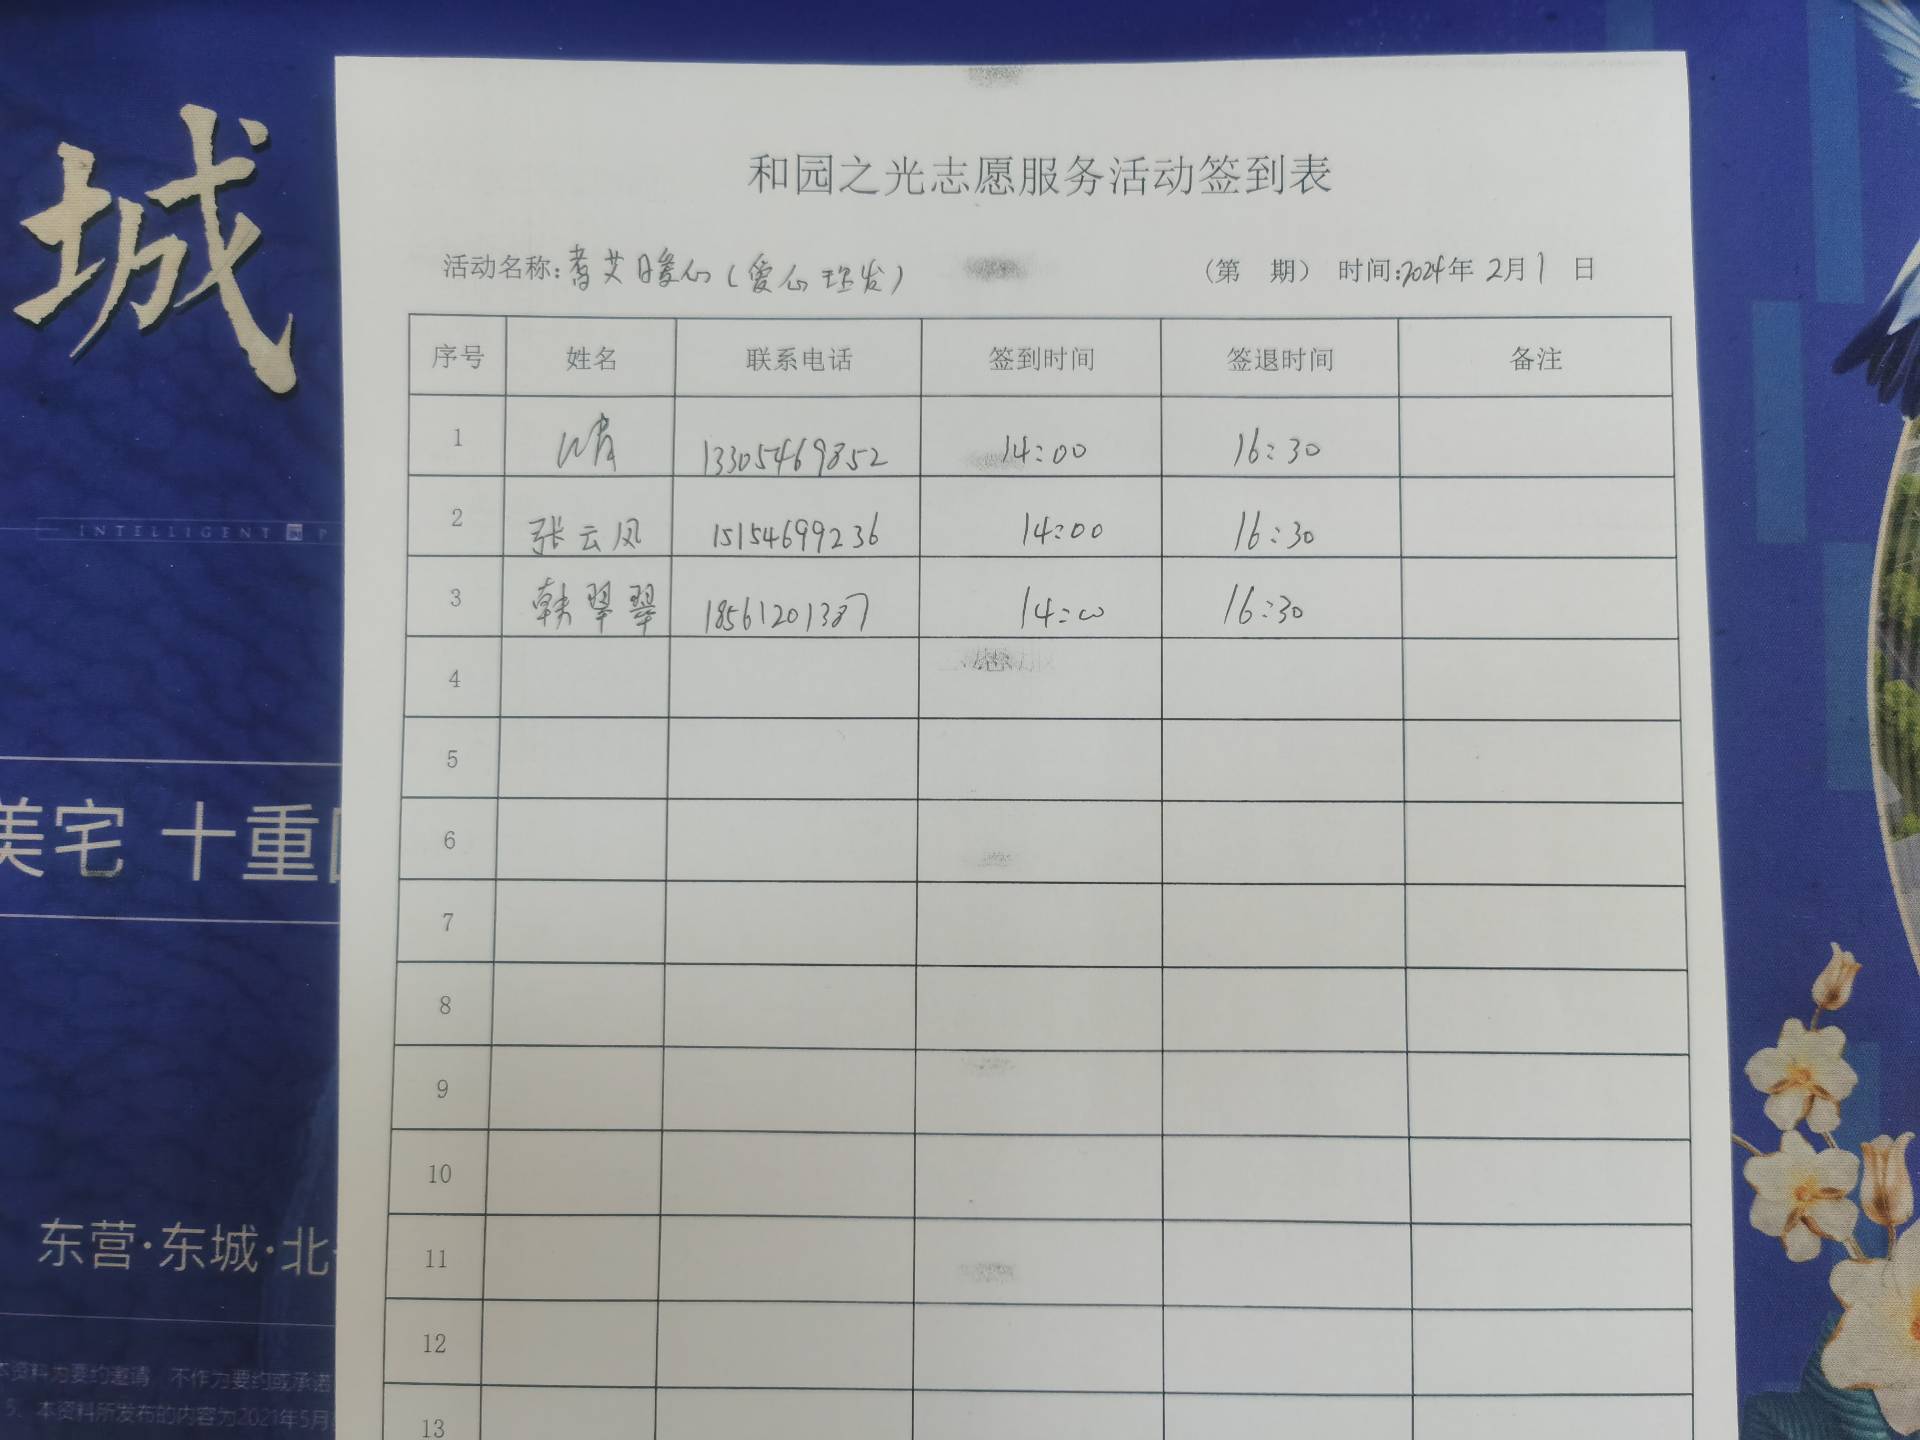 和园之光志愿服务活动签到表
活动名称:耆艾暖心(爱心理发) (第 期) 时间:2024年 2月1 日
序号 姓名 联系电话 签到时间 签退时间 备注
1 13305469852 14:00 16:30
2 张云凤 15154699236 14:00 16:30
3 韩翠翠 18561201387 14:00 16:30
4
5
6
7
8
9
10
11
12
13
城
INTELLIGENT
美宅 十重
东营·东城·北
本资料为要约邀请 不作为要约或承诺
5、本资料所发布的内容为2021年5月